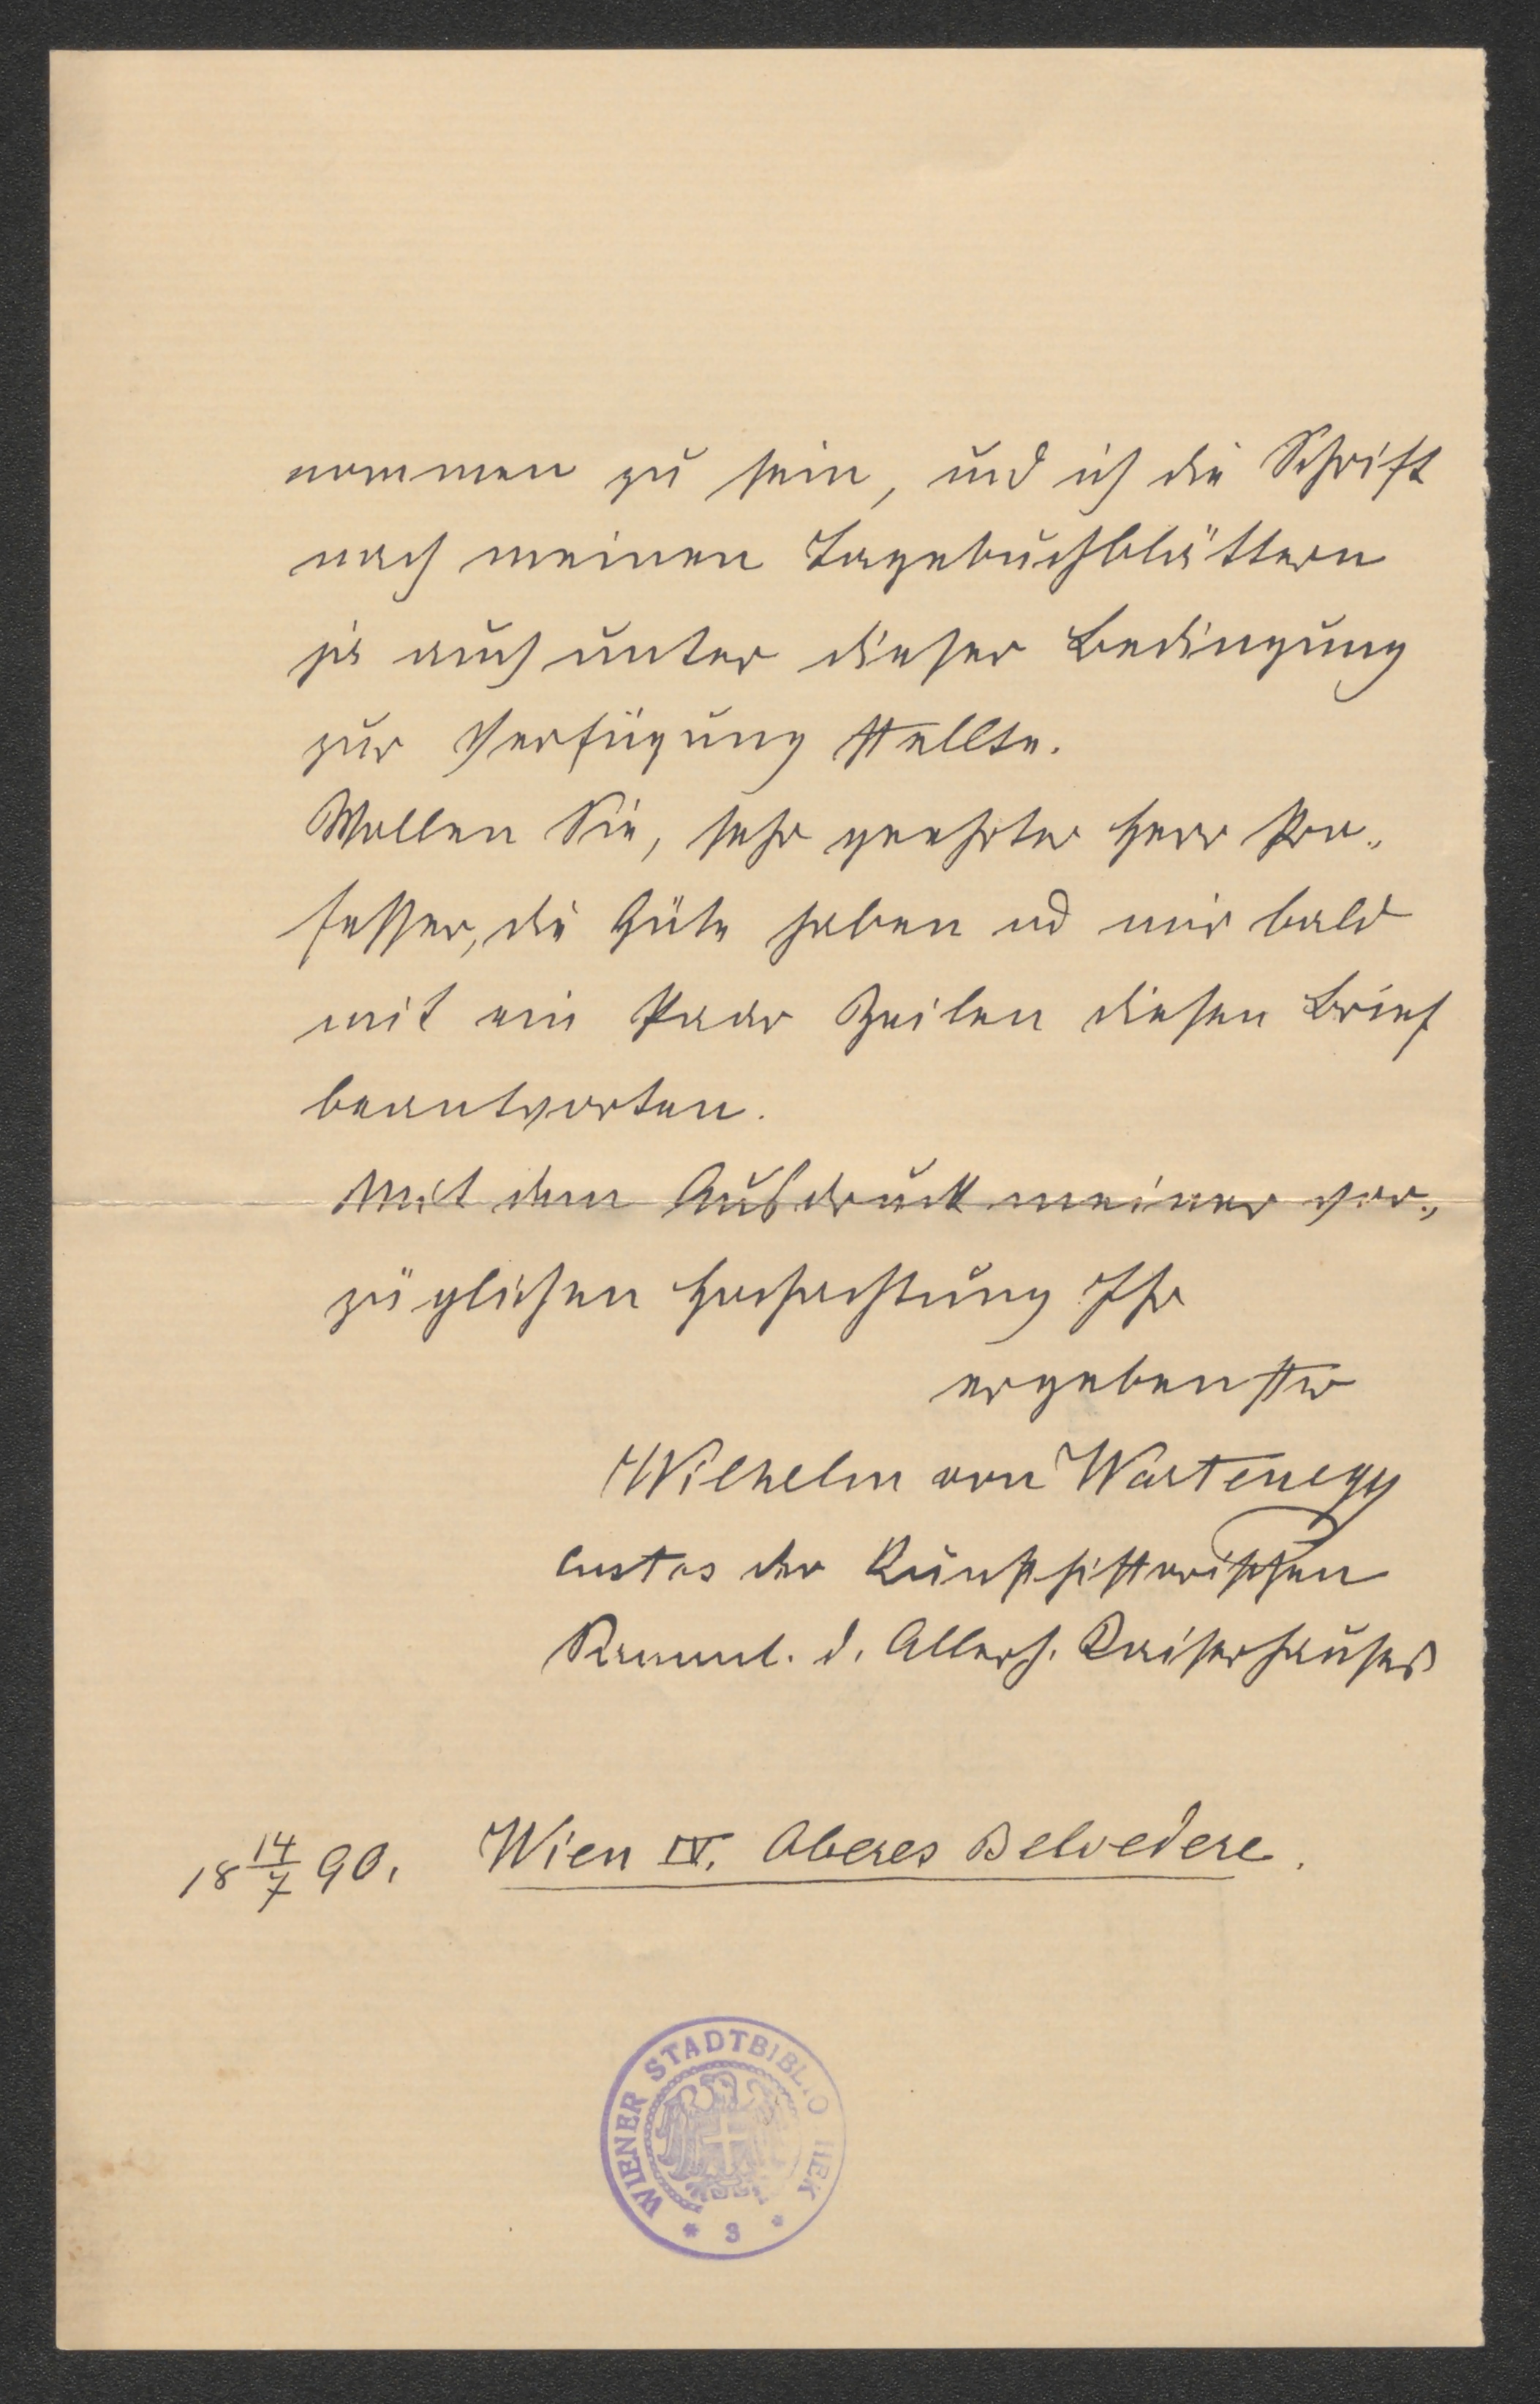 nommen zu sein, und ich die Schrift
nach meinen Tagebuchblättern
ja auch unter dieser Bedingung
zur Verfügung stellte.
Wollen Sie, sehr geehrter Herr Pro-
fessor, die Güte haben ud mir bald
mit ein Paar Zeilen diesen Brief
beantworten.
Mit dem Ausdruck meiner vor-
züglichen Hochachtung Ihr
ergebenster
Wilhelm von Wartenegg
Custos der Kunsthistorischen
Samml. d. Allerh. Kaiserhauses
18 14/7 90. Wien IV. Oberes Belvedere.
WIENER STADTBIBLIOTHEK
* 3 *